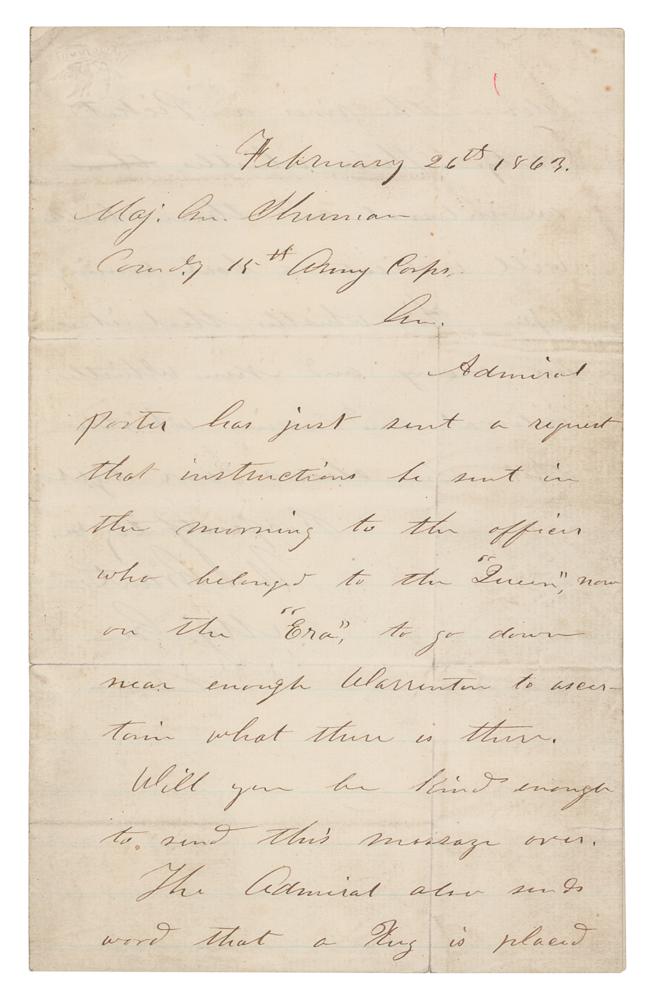 February 26th 1863.
Maj. Gen. Sherman
Comdg 15th Army Corps.
Gen.
Admiral
Porter has just sent a request
that instructions be sent in
the morning to the officer
who belonged to the "Queen", now
on the "Era", to go down
near enough Warrenton to ascer-
tain what there is there.
Will you be kind enough
to send this message over.
The Admiral also sends
word that a Tug is placed